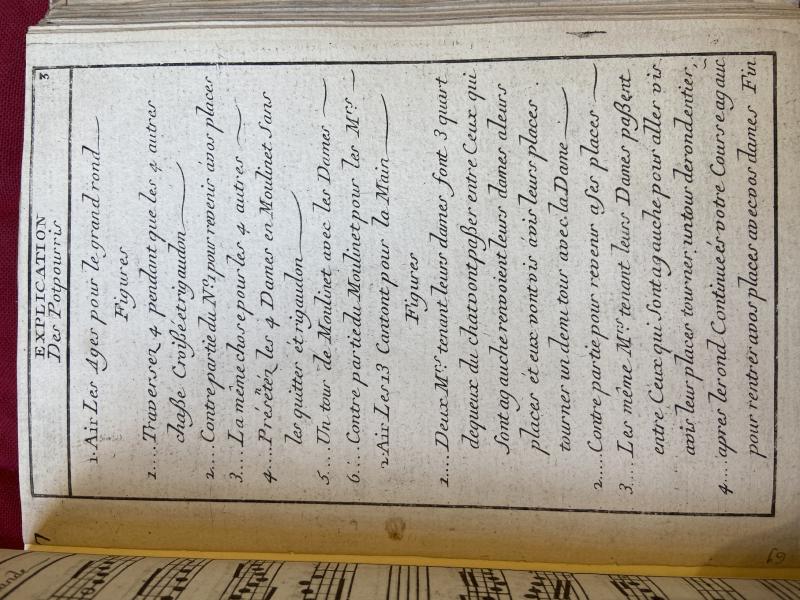 7
3
EXPLICATION
Des Potpourris
1. Air Les Ages pour le grand rond
Figures
1.... Traversez 4 pendant que les 4 autres
chaſſe Croiſſé et rigaudon
2.... Contre partie du N.º 1 pour revenir a vos places
3.... La même chose pour les 4 autres
4.... Présentéz les 4 Dames en Moulinet Sans
les quitter et rigaudon
5.... Un tour de Moulinet avec les Dames
6.... Contre partie du Moulinet pour les M.rs
2. Air Les 13 Cantont pour la Main
Figures
1.... Deux M.rs tenant leurs dames font 3 quart
de queux du chat vont paßer entre Ceux qui
Sont a gauche renvoient leurs dames a leurs
places et eux vont vis a vis leurs places
tourner un demi tour avec la Dame
2.... Contre partie pour revenir a ses places
3.... Les même M.rs tenant leurs Dames paßent
entre Ceux qui Sont a gauche pour aller vis
a vis leur places tourner un tour de rond entier,
4.... apres le rond Continueér votre Course a gauc̃
pour rentrér a vos places avec vos dames Fin
69